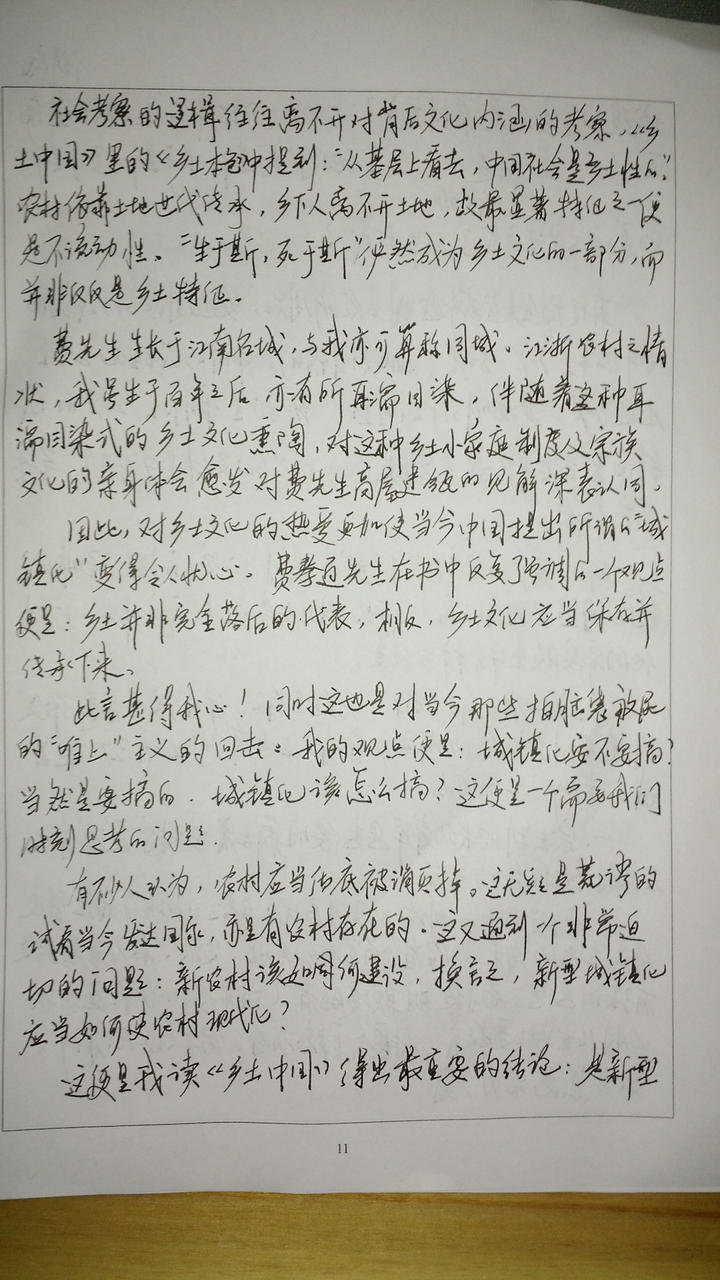 社会考察的逻辑往往离不开对背后文化内涵的考察，《乡
土中国》里的《乡土本色》中提到："从基层上看去，中国社会是乡土性的。"
农村依靠土地世代传承，乡下人离不开土地，故最显著特征之一便
是不流动性。"生于斯，死于斯"俨然成为乡土文化的一部分，而
并非仅仅是乡土特征。
费先生生长于江南名城，与我亦可算称同城。江浙农村之情
状，我虽生于百年之后亦有所耳濡目染，伴随着这种耳
濡目染式的乡土文化熏陶，对这种乡土小家庭制度及宗族
文化的亲身体会愈发对费先生高屋建瓴的见解深表认同。
因此，对乡土文化的热爱更加使当今中国提出所谓的"城
镇化"变得令人忧心。费孝通先生在书中反复强调的一个观点
便是：乡土并非完全落后的代表，相反，乡土文化应当保存并
传承下来。
此言甚得我心！同时这也是对当今那些拍脑袋放屁
的"唯上"主义的回击。我的观点便是：城镇化要不要搞？
当然是要搞的．城镇化该怎么搞？这便是一个需要我们
时刻思考的问题．
有不少人认为，农村应当彻底被消灭掉。这无疑是荒谬的
试看当今发达国家，亦是有农村存在的．这又遇到一个非常迫
切的问题：新农村该如何建设，换言之，新型城镇化
应当如何使农村现代化？
这便是我读《乡土中国》得出最重要的结论：是新型
11